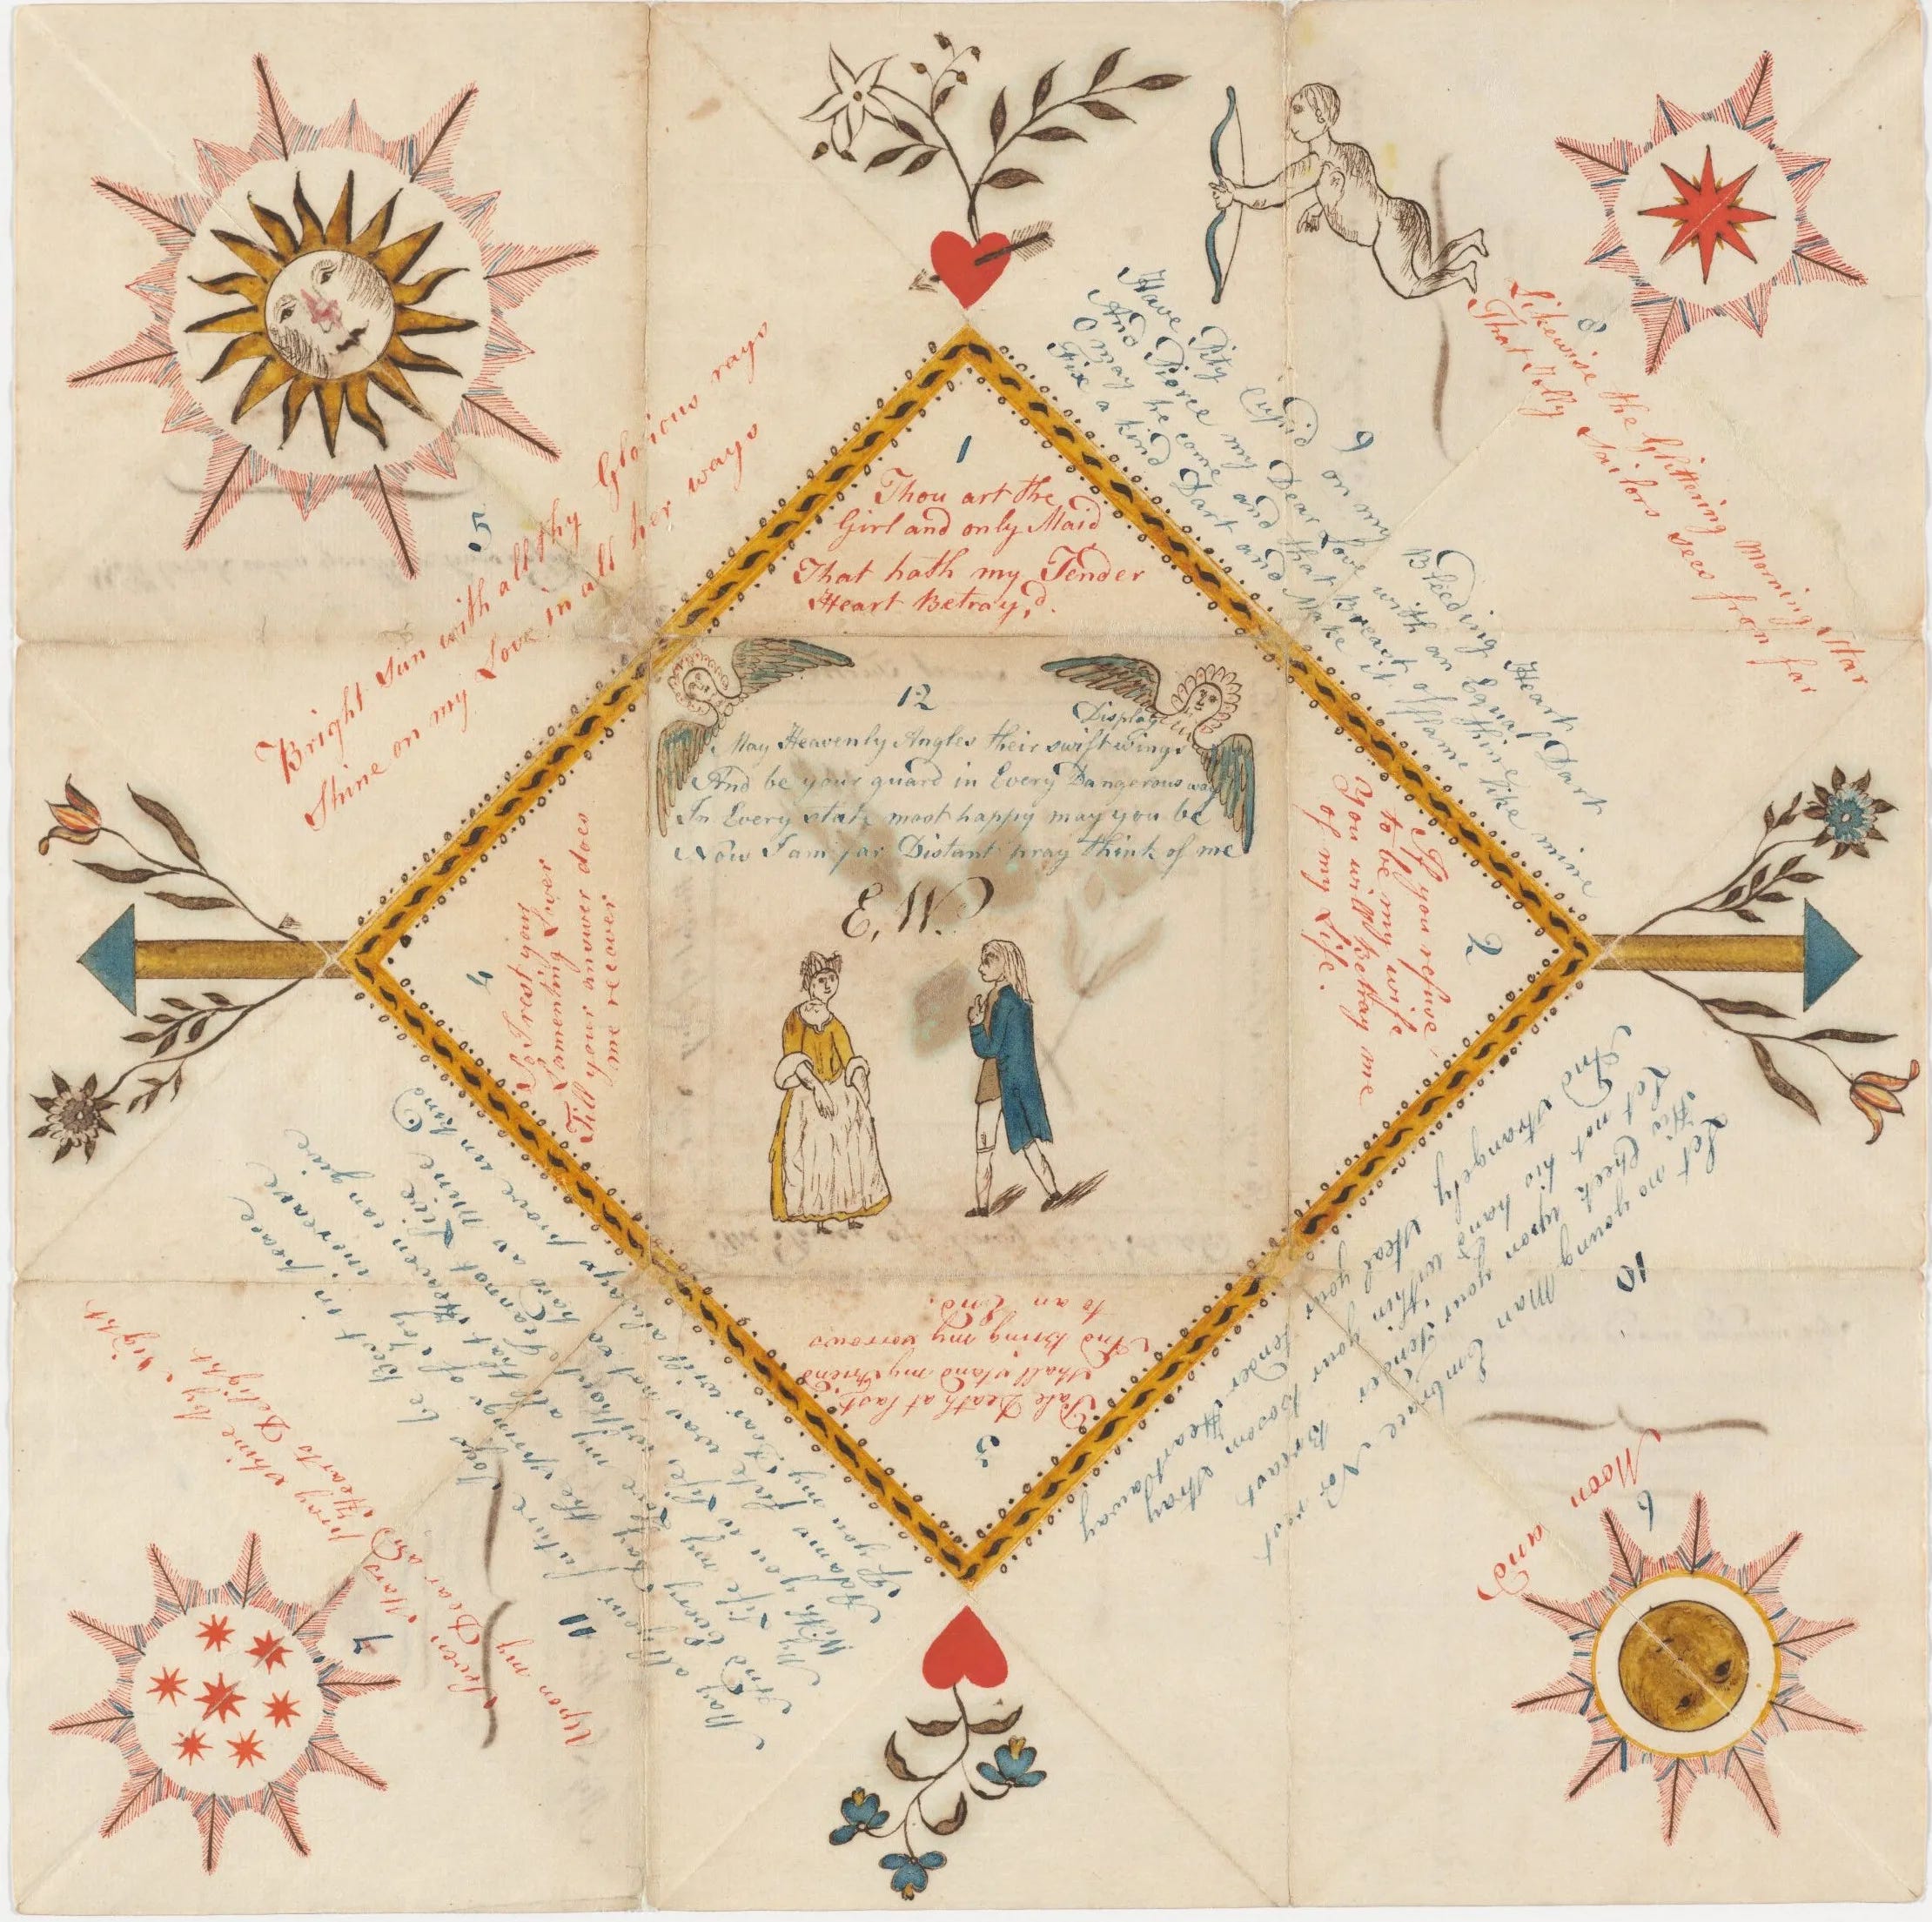 1
Thou art the
Girl and only Maid
That hath my Tender
Heart Betray,d.
2
If you refuse
to be my wife
You will Betray me
of my Life.
3
Pale Death at last
Shall stand my friend
And bring my sorrows
to an End.
4
So I rest your
Lamenting Lover
Till your answer does
me recover
5
Bright Sun with all thy Glorious rays
Shine on my Love in all her ways
6
Moon and
7
pray shine by Night
Upon my Dear and Hearts Delight
8
Likewise the Glittering morning Star
That Jolly Sailors sees from far
9
Have Pity Cupid on my Bleeding Heart
And Pierce my Dear Love with an Equal Dart
O may he come and that Breast of thine
Fix a kind Dart and Make it flame like mine
10
Let no young Man Embrace Nor rest
His Cheek upon your Tender Breast
Let not his hand within your bosom stray
And strangely steal your tender Heart away
11
If you my Dear will always prove unkind
Adams fate was not so hard as Mine
With you is Life without I cannot Live
My Life my Love my all that Heaven can give
And Every Day the springs of Joy increase
May all your future Days be Bless't in peace
12
May Heavenly Angles their swift wings Display
And be your guard in Every Dangerous way
In Every state most happy may you be
Now I am far Distant pray think of me
E. W.